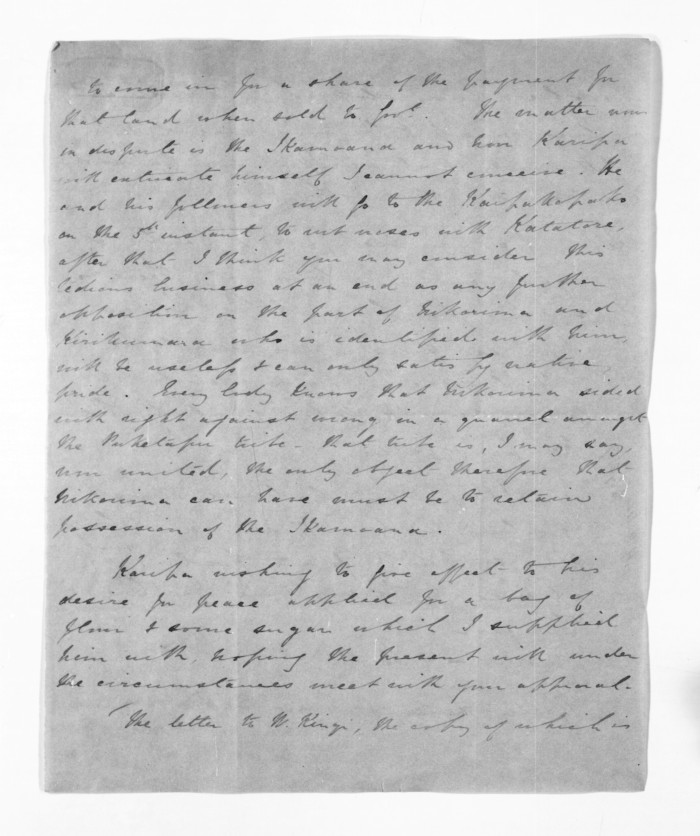 to come in for a share of the payment for
that land when sold to Govt. The matter now
in dispute is the Ikamoana and how Karipa
will extricate himself I cannot conceive. He
and his followers will go to the Kaipakopako
on the 5th instant to rub noses with Katatore,
after that I think you may consider this
tedious business at an end as any further
opposition on the part of Nikorima and
Kirikumara who is identified with him,
will be useless & can only satisfy native
pride. Every body knows that Nikorima sided
with right against wrong in a quarrel amongst
the Puketapu tribe - that tribe is, I may say,
now united, the only object therefore that
Nikorima can have must be to retain
possession of the Ikamoana.
Karipa wishing to give effect to his
desire for peace applied for a bag of
flour & some sugar which I supplied
him with, hoping the present will under
the circumstances meet with your approval.
The letter to W. Kingi, the copy of which is